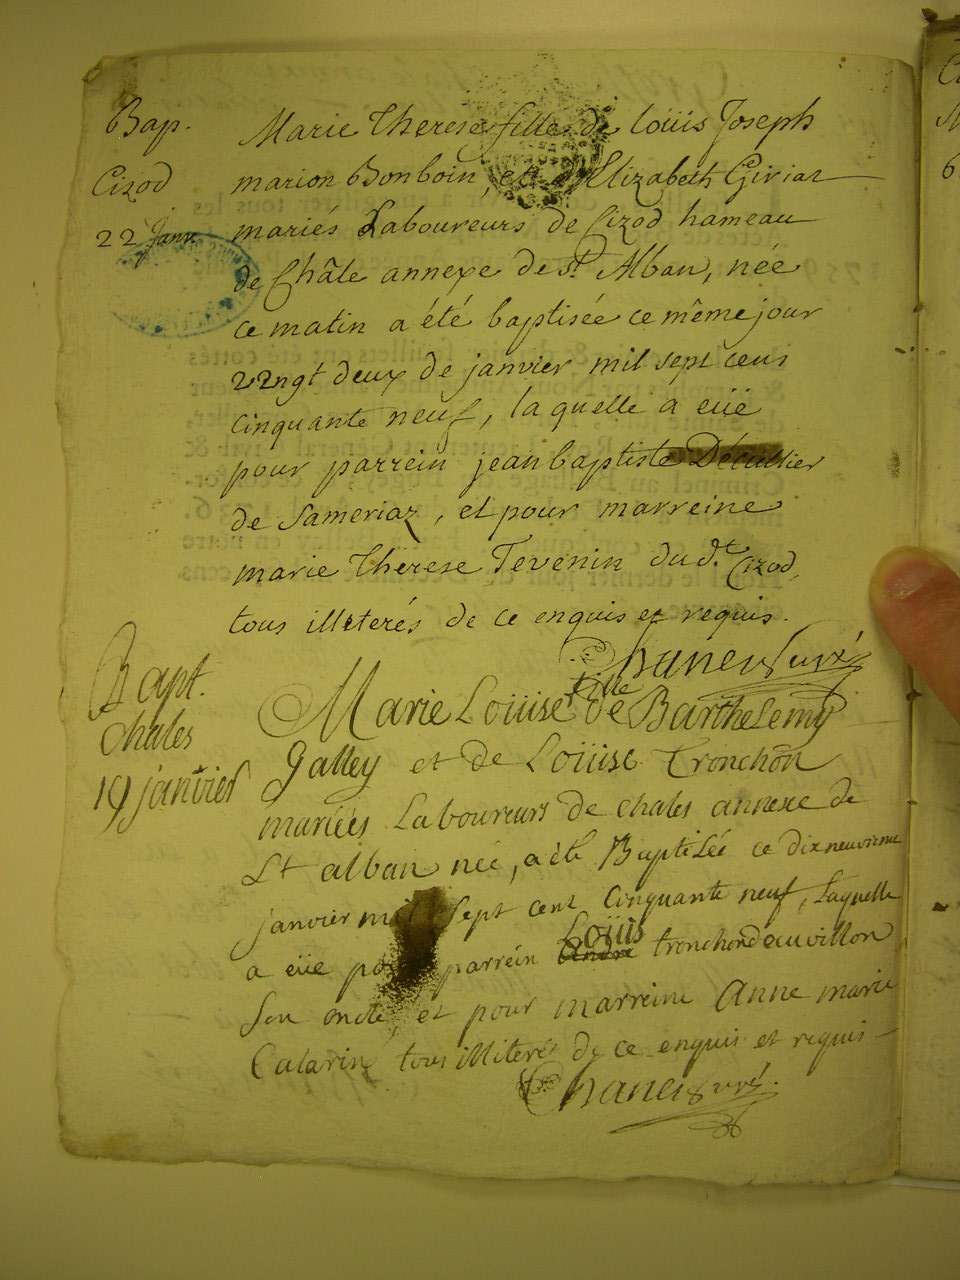 Bap.
Cizod
22 Janv.
Marie Therese fille de Loüis Joseph
marion Bonboin, et d'Elizabeth Giriat
mariés Laboureurs de Cizod hameau
de Châle annexe de st Alban, née
ce matin a été baptisée ce même jour
vingt deux de janvier mil sept cens
cinquante neuf, laquelle a eüe
pour parrein jean baptiste Décullier
de Sameriaz, et pour marreine
marie Therese Tevenin du d.t Cizod,
tous illeterés de ce enquis et requis.
Bapt.
chales
19 janvier
Marie Loüise fille de Barthelemy
Galley et de Loüise Tronchon
mariés Laboureurs de chales annexe de
St alban née, a été Baptisée ce dix neuvieme
janvier mil sept cent cinquante neuf, Laquelle
a eüe pour parrein Loüis tronchon deauvillon
Son oncle, et pour marreine Anne marie
Catarin tous illiterés de ce enquis et requis